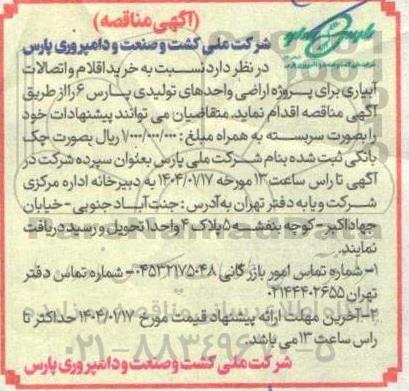 (آگهی مناقصه)
شرکت ملی کشت و صنعت و دامپروری پارس
در نظر دارد نسبت به خرید اقلام و اتصالات
آبیاری برای پروژه اراضی واحدهای تولیدی پارس ۱،۶ از طریق
آگهی مناقصه اقدام نماید. متقاضیان می توانند پیشنهادات خود
را بصورت سربسته به همراه مبلغ: ۱/۰۰۰/۰۰۰/۰۰۰ ریال بصورت چک
بانکی ثبت شده بنام شرکت ملی پارس بعنوان سپرده شرکت در
آگهی تا راس ساعت ۱۳ مورخه ۱۴۰۴/۰۱/۱۷ به دبیرخانه اداره مرکزی
شرکت و یا به دفتر تهران به آدرس: جنت آباد جنوبی - خیابان
جهاد اکبر - کوچه بنفشه ۵ پلاک ۴ واحد ۱ تحویل و رسید دریافت
نمایند.
۱- شماره تماس امور بازرگانی ۰۴۵۳۲۱۷۵۰۴۸ - شماره تماس دفتر
تهران ۰۲۱۴۴۴۰۲۶۵۵
۲- آخرین مهلت ارائه پیشنهاد قیمت مورخ ۱۴۰۴/۰۱/۱۷ حداکثر تا
راس ساعت ۱۳ می باشد.
شرکت ملی کشت و صنعت و دامپروری پارس